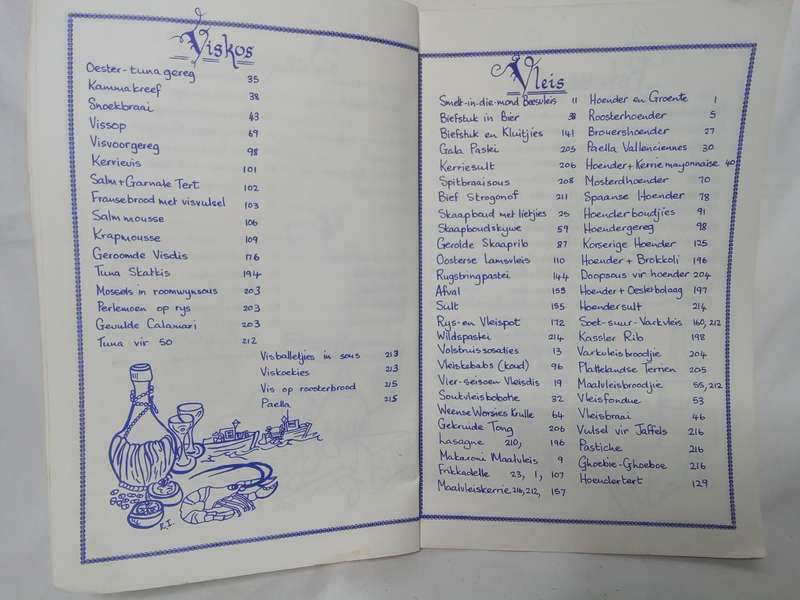 Viskos
Oester-tuna gereg 35
Kammakreef 38
Snoekbraai 43
Vissop 69
Visvoorgereg 98
Kerrievis 101
Salm+Garnale Tert 102
Fransebrood met visvulsel 103
Salm mousse 106
Krapmousse 109
Geroomde Visdis 176
Tuna Skatkis 194
Mossels in roomwynsous 203
Perlemoen op rys 203
Gevulde Calamari 203
Tuna vir 50 212
Visballetjies in sous 213
Viskoekies 213
Vis op roosterbrood 215
Paella 215
R.I.
Vleis
Smelt-in-die-mond Beesvleis 11
Biefstuk in Bier 38
Biefstuk en Kluitjies 141
Gala Pastei 205
Kerriesult 206
Spitbraaisous 208
Bief Strogonof 211
Skaapboud met lietjies 25
Skaapboudskywe 59
Gerolde Skaaprib 87
Oosterse Lamsvleis 110
Rugstringpastei 144
Afval 155
Sult 155
Rys-en Vleispot 172
Wildspastei 214
Volstruissosaties 13
Vleiskababs (koud) 96
Vier-seisoen Vleisdis 19
Soutvleisbobotie 32
Weense Worsies Krulle 64
Gekruide Tong 206
Lasagne 210, 196
Makaroni Maalvleis 9
Frikkadelle 23, 1, 107
Maalvleiskerrie 216, 212, 157
Hoender en Groente 1
Roosterhoender 5
Brouershoender 27
Paella Vallenciennes 30
Hoender+Kerrie mayonnaise 40
Mosterdhoender 70
Spaanse Hoender 78
Hoenderboudjies 91
Hoendergereg 98
Korserige Hoender 125
Hoender + Brokkoli 196
Doopsous vir hoender 204
Hoender + Oesterbolaag 197
Hoendersult 214
Soet-suur-Varkvleis 160, 212
Kassler Rib 198
Varkvleisbroodjie 204
Plattelandse Terrien 205
Maalvleisbroodjie 55, 212
Vleisfondue 53
Vleisbraai 46
Vulsel vir Jaffels 216
Pastiche 216
Ghoebie-Ghoeboe 216
Hoendertert 129